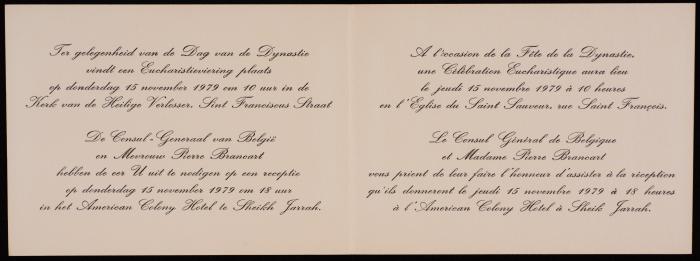 Ter gelegenheid van de Dag van de Dynastie
vindt een Eucharistieviering plaats
op donderdag 15 november 1979 om 10 uur in de
Kerk van de Heilige Verlosser, Sint Franciscus Straat
De Consul-Generaal van België
en Mevrouw Pierre Brancart
hebben de eer U uit te nodigen op een receptie
op donderdag 15 november 1979 om 18 uur
in het American Colony Hotel te Sheikh Jarrah.
A l'occasion de la Fête de la Dynastie,
une Célébration Eucharistique aura lieu
le jeudi 15 novembre 1979 à 10 heures
en l'Eglise du Saint Sauveur, rue Saint François.
Le Consul Général de Belgique
et Madame Pierre Brancart
vous prient de leur faire l'honneur d'assister à la réception
qu'ils donneront le jeudi 15 novembre 1979 à 18 heures
à l'American Colony Hotel à Sheik Jarrah.